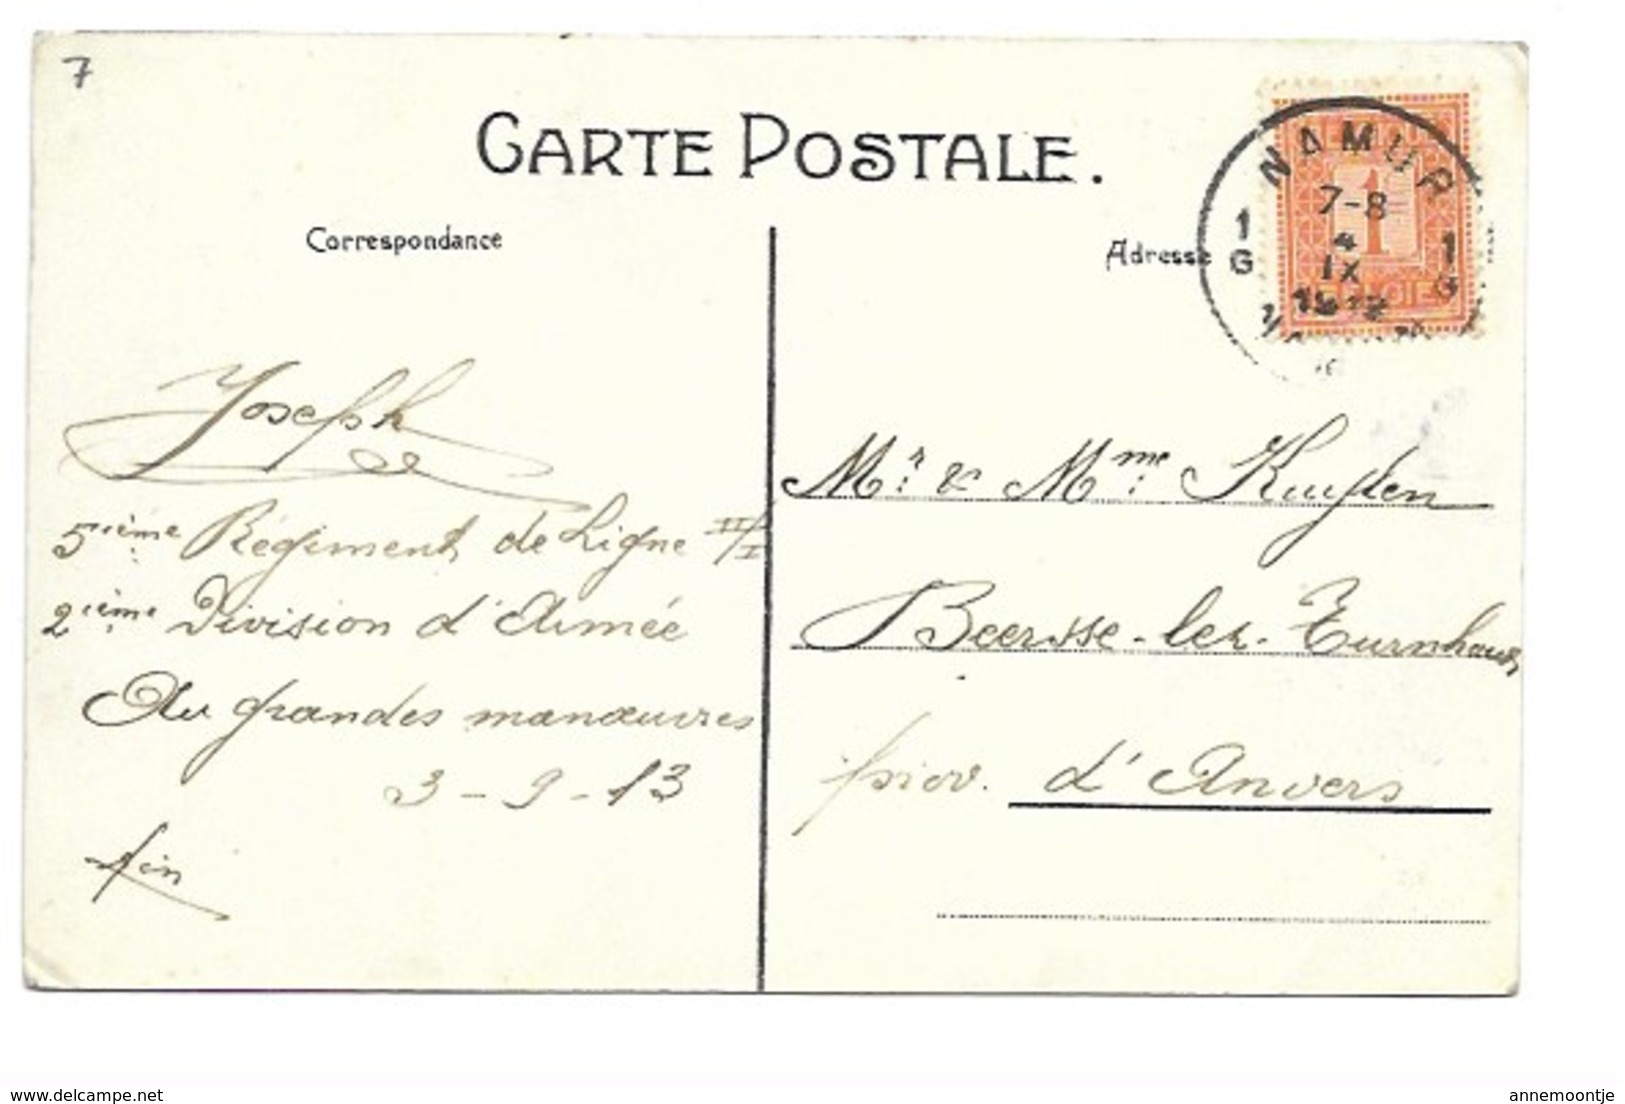 7
CARTE POSTALE.
Correspondance
Adresse
NAMUR
7-8
4
IX
1 G
1 G
1
Joseph
5ième Régiment de Ligne II/I
2ième Division d'Armée
Au grandes manœuvres
3-9-13
fin
Mr: & Mme: Kuylen
Beersse-lez-Turnhout
prov. d'Anvers
www.delcampe.net
annemoontje